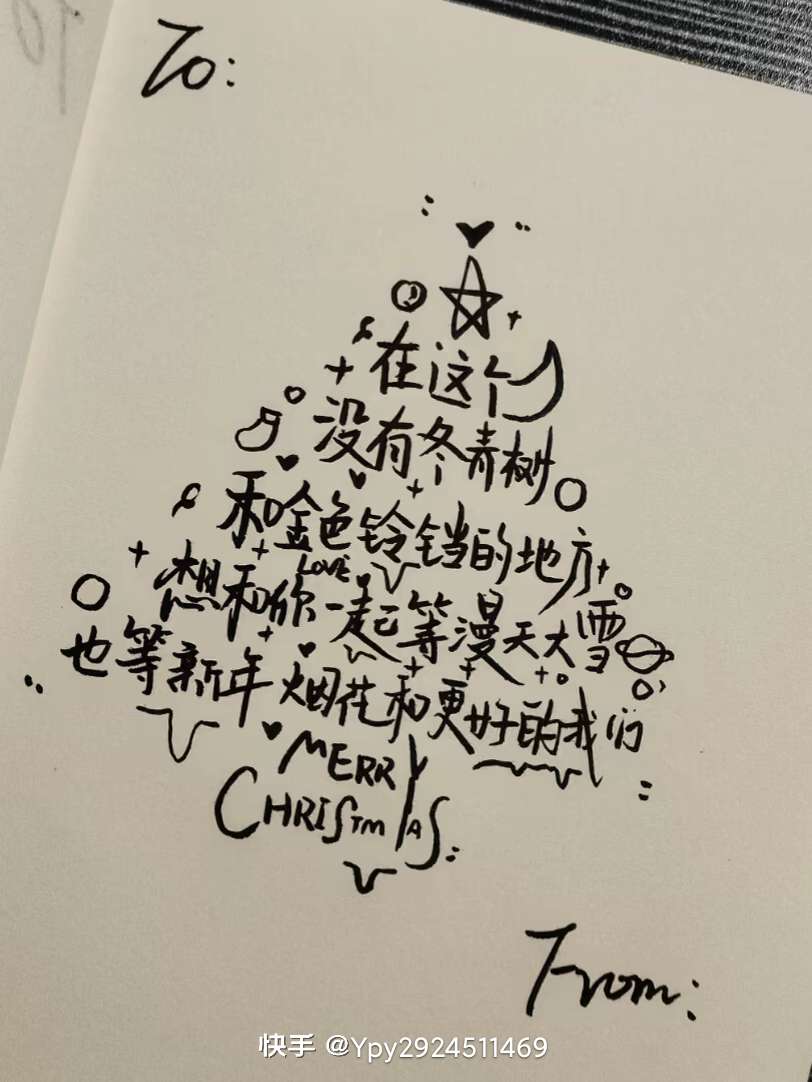 To:
在这个
没有冬青树
和金色铃铛的地方
LOVE
想和你一起等漫天大雪
也等新年烟花和更好的我们
MERRY
CHRISTMAS
From:
快手 @Ypy2924511469